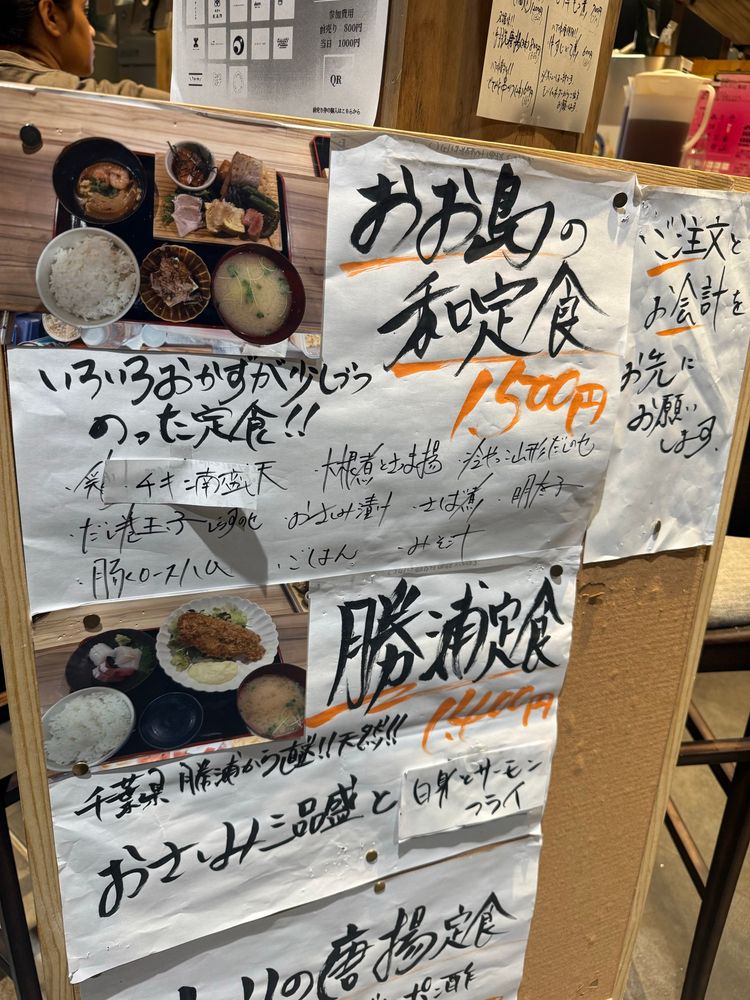 参加費用
前売り 800円
当日 1000円
QR
おお島の
和定食
1.500円
いろいろおかずが少しづつ
のった定食!!
チキン南蛮
・大根煮とさつま揚
・冷やっこ山形だしのせ
・だし巻玉子
・おさしみ漬け
・さば煮
・明太子
・豚ロースハム
・ごはん
・みそ汁
ご注文と
お会計を
お先に
お願い
します。
勝浦定食
1.400円
千葉県 勝浦から直送!!天然だゾ!!
おさしみ三品盛と
白身とサーモン
フライ
の唐揚定食
ポン酢